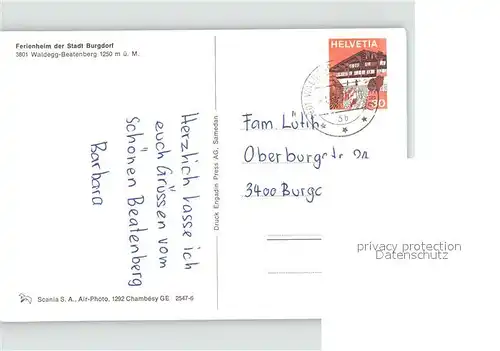 Ferienheim der Stadt Burgdorf
3801 Waldegg-Beatenberg 1250 m ü. M.
HELVETIA
30
5b
Herzlich lasse ich
euch Grüssen vom
Schönen Beatenberg
Barbara
Druck Engadin Press AG, Samedan
Fam. Lüthi
Oberburgstr.
3400 Burgd
privacy protection
Datenschutz
Scania S. A., Air-Photo, 1292 Chambésy GE 2547-6